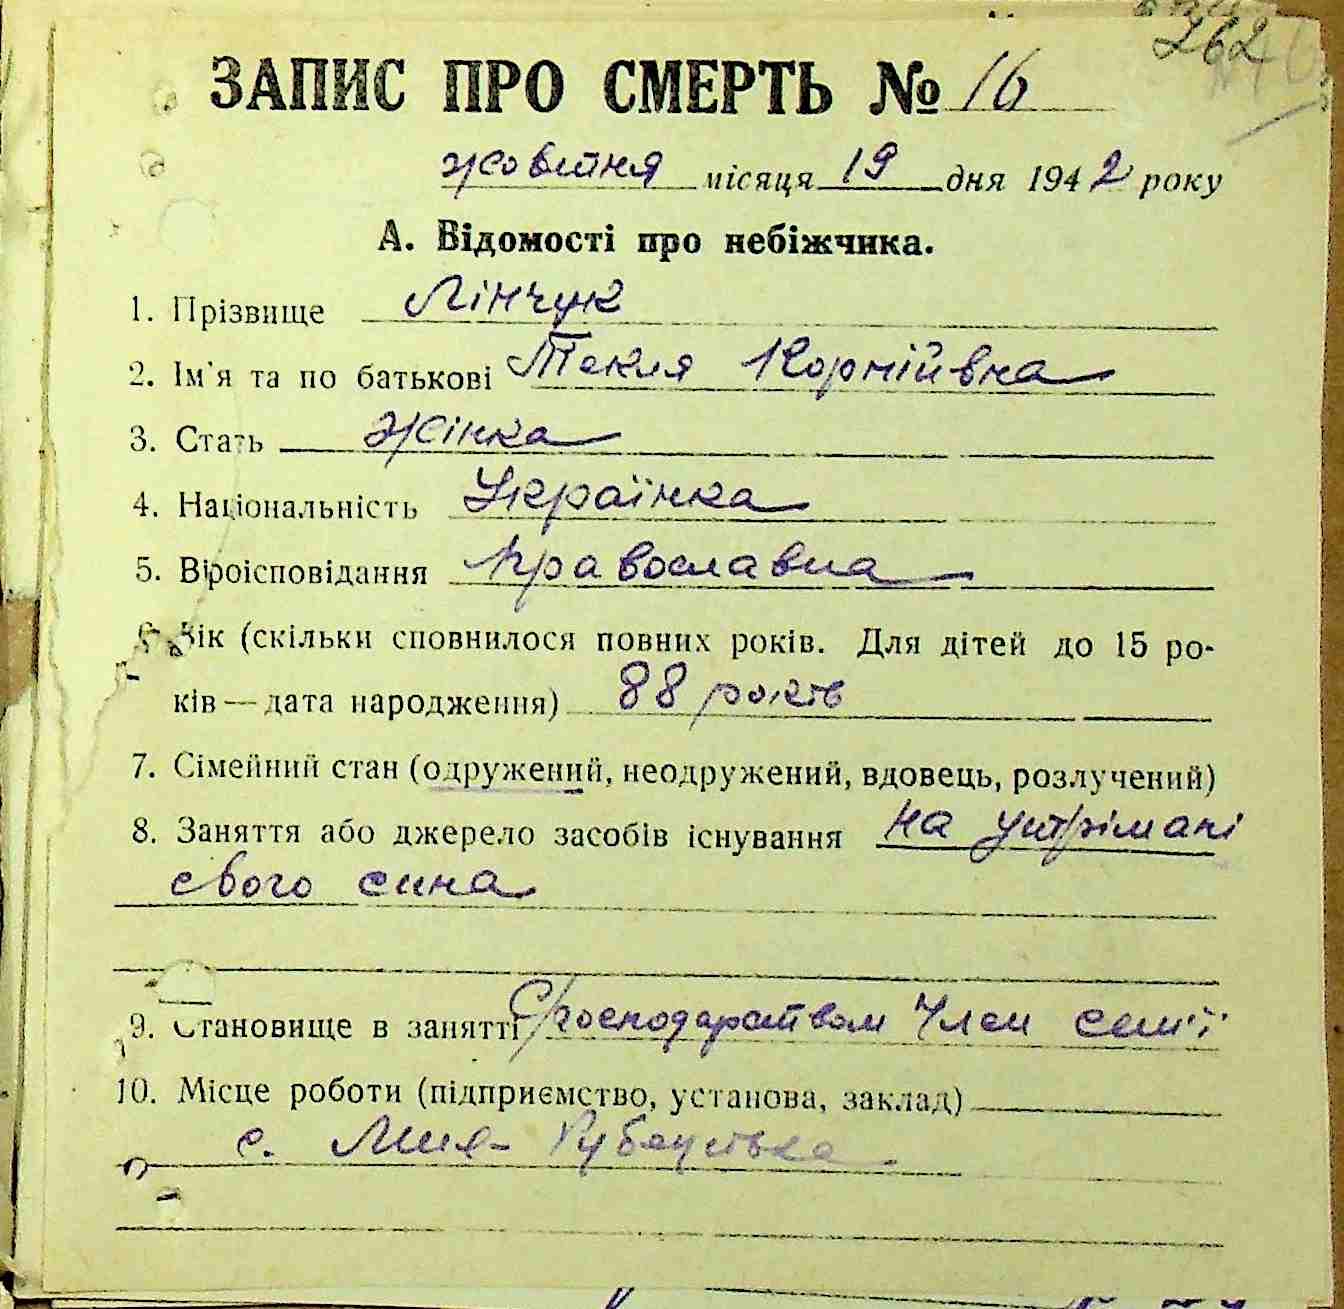 262
ЗАПИС ПРО СМЕРТЬ № 16
жовтня місяця 19 дня 1942 року
А. Відомості про небіжчика.
1. Прізвище Лінчук
2. Ім'я та по батькові Текля Корнійвна
3. Стать жінка
4. Національність Українка
5. Віроісповідання Православна
6. Вік (скільки сповнилося повних років. Для дітей до 15 ро-
ків — дата народження) 88 років
7. Сімейний стан (одружений, неодружений, вдовець, розлучений)
8. Заняття або джерело засобів існування на утрімані
свого сина
9. Становище в занятті господарством Член семії
10. Місце роботи (підприємство, установа, заклад)
с.